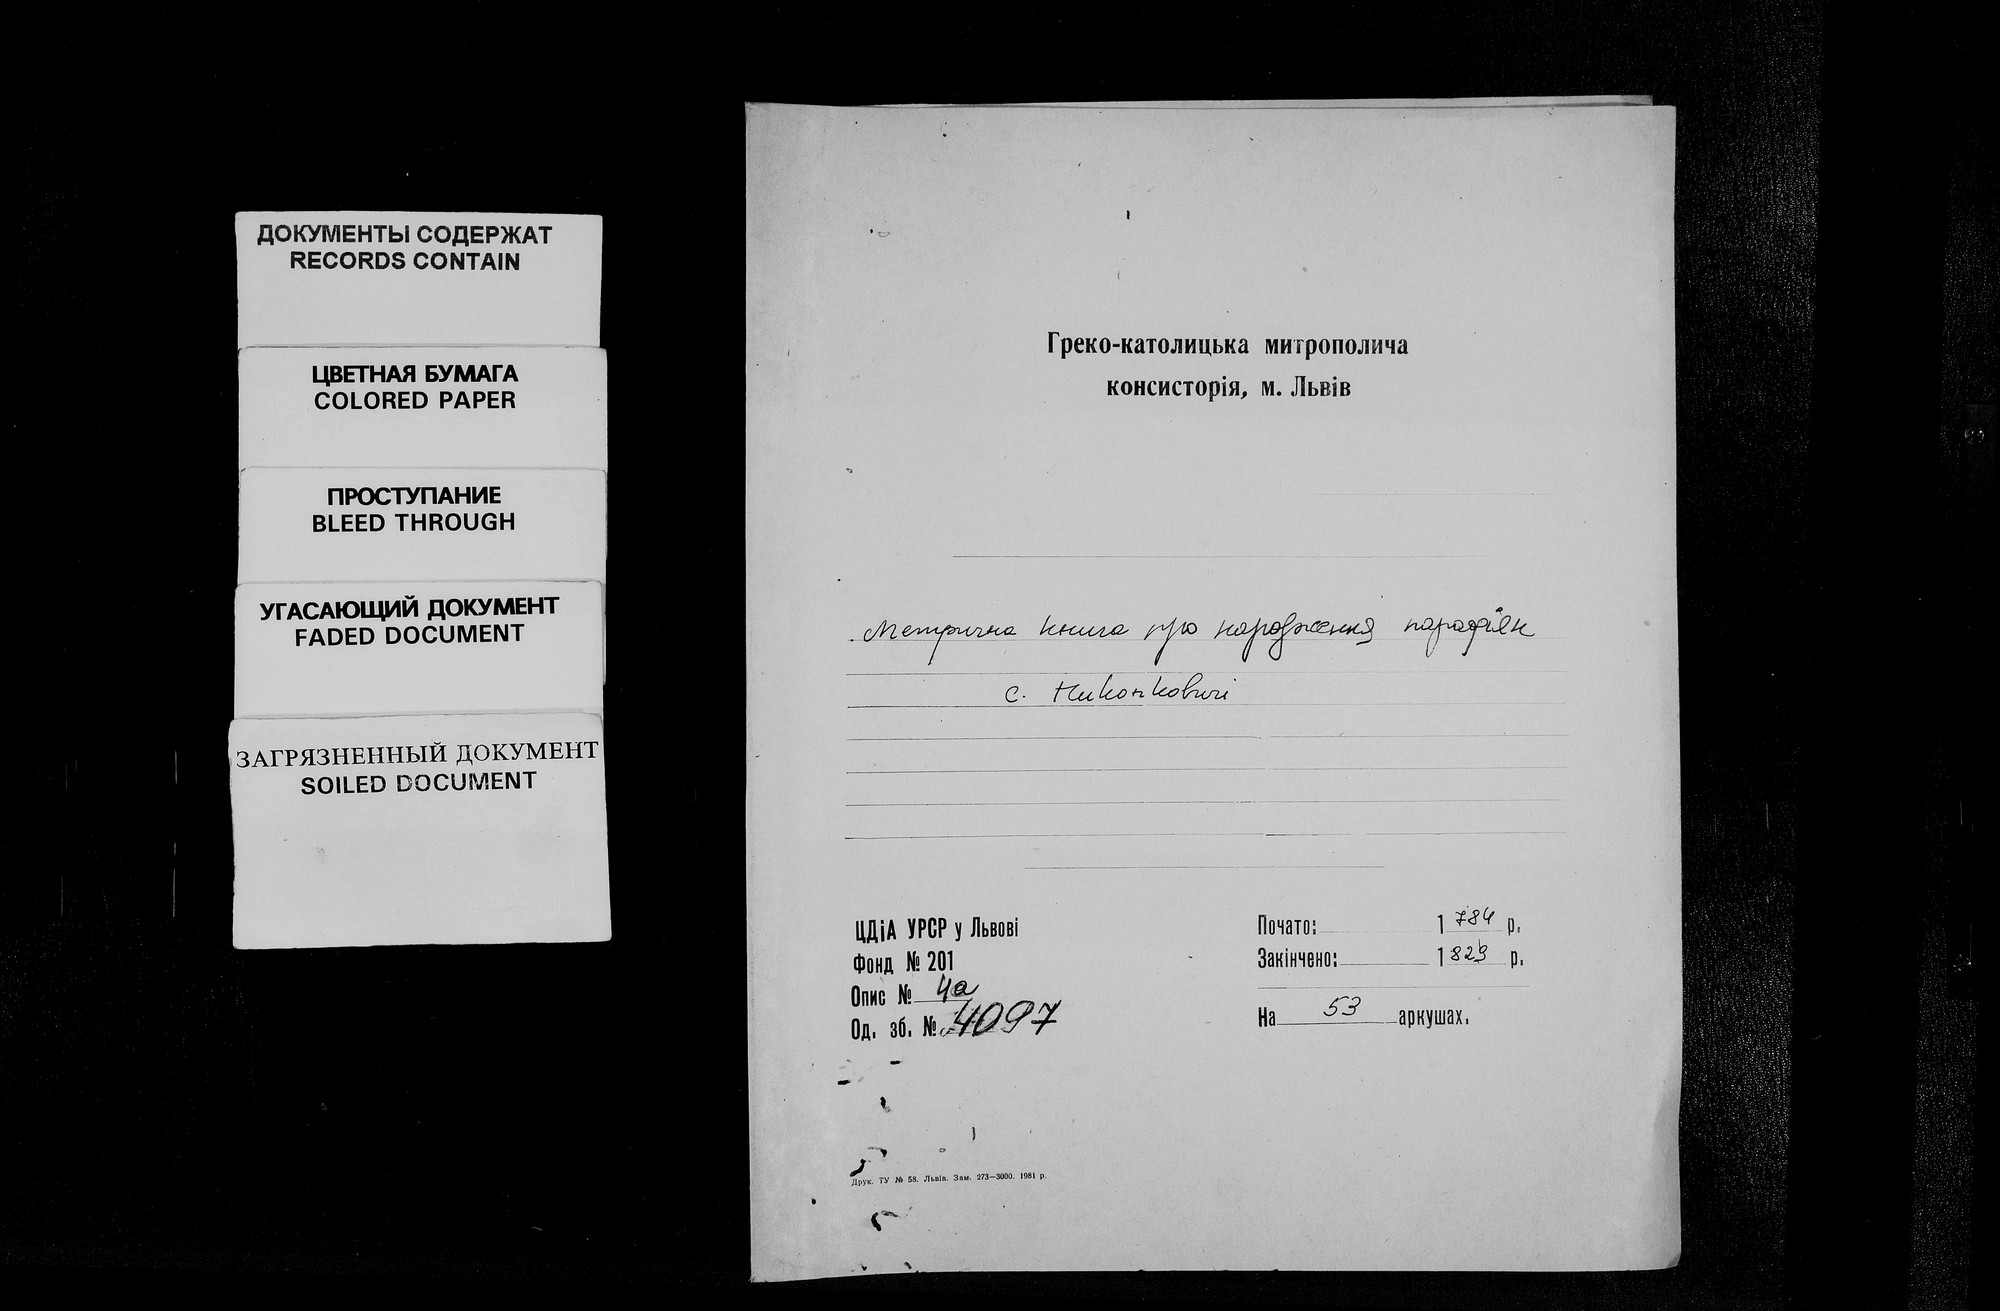 ДОКУМЕНТЫ СОДЕРЖАТ
RECORDS CONTAIN
ЦВЕТНАЯ БУМАГА
COLORED PAPER
ПРОСТУПАНИЕ
BLEED THROUGH
УГАСАЮЩИЙ ДОКУМЕНТ
FADED DOCUMENT
ЗАГРЯЗНЕННЫЙ ДОКУМЕНТ
SOILED DOCUMENT
Греко-католицька митрополича
консисторія, м. Львів
Метрична книга про народження парафіян
с. Никонковичі
ЦДіА УРСР у Львові
Фонд № 201
Опис № 4а
Од. зб. № 4097
Почато: 1784 р.
Закінчено: 1829 р.
На 53 аркушах.
Друк. ТУ № 58. Львів. Зам. 273—3000. 1981 р.